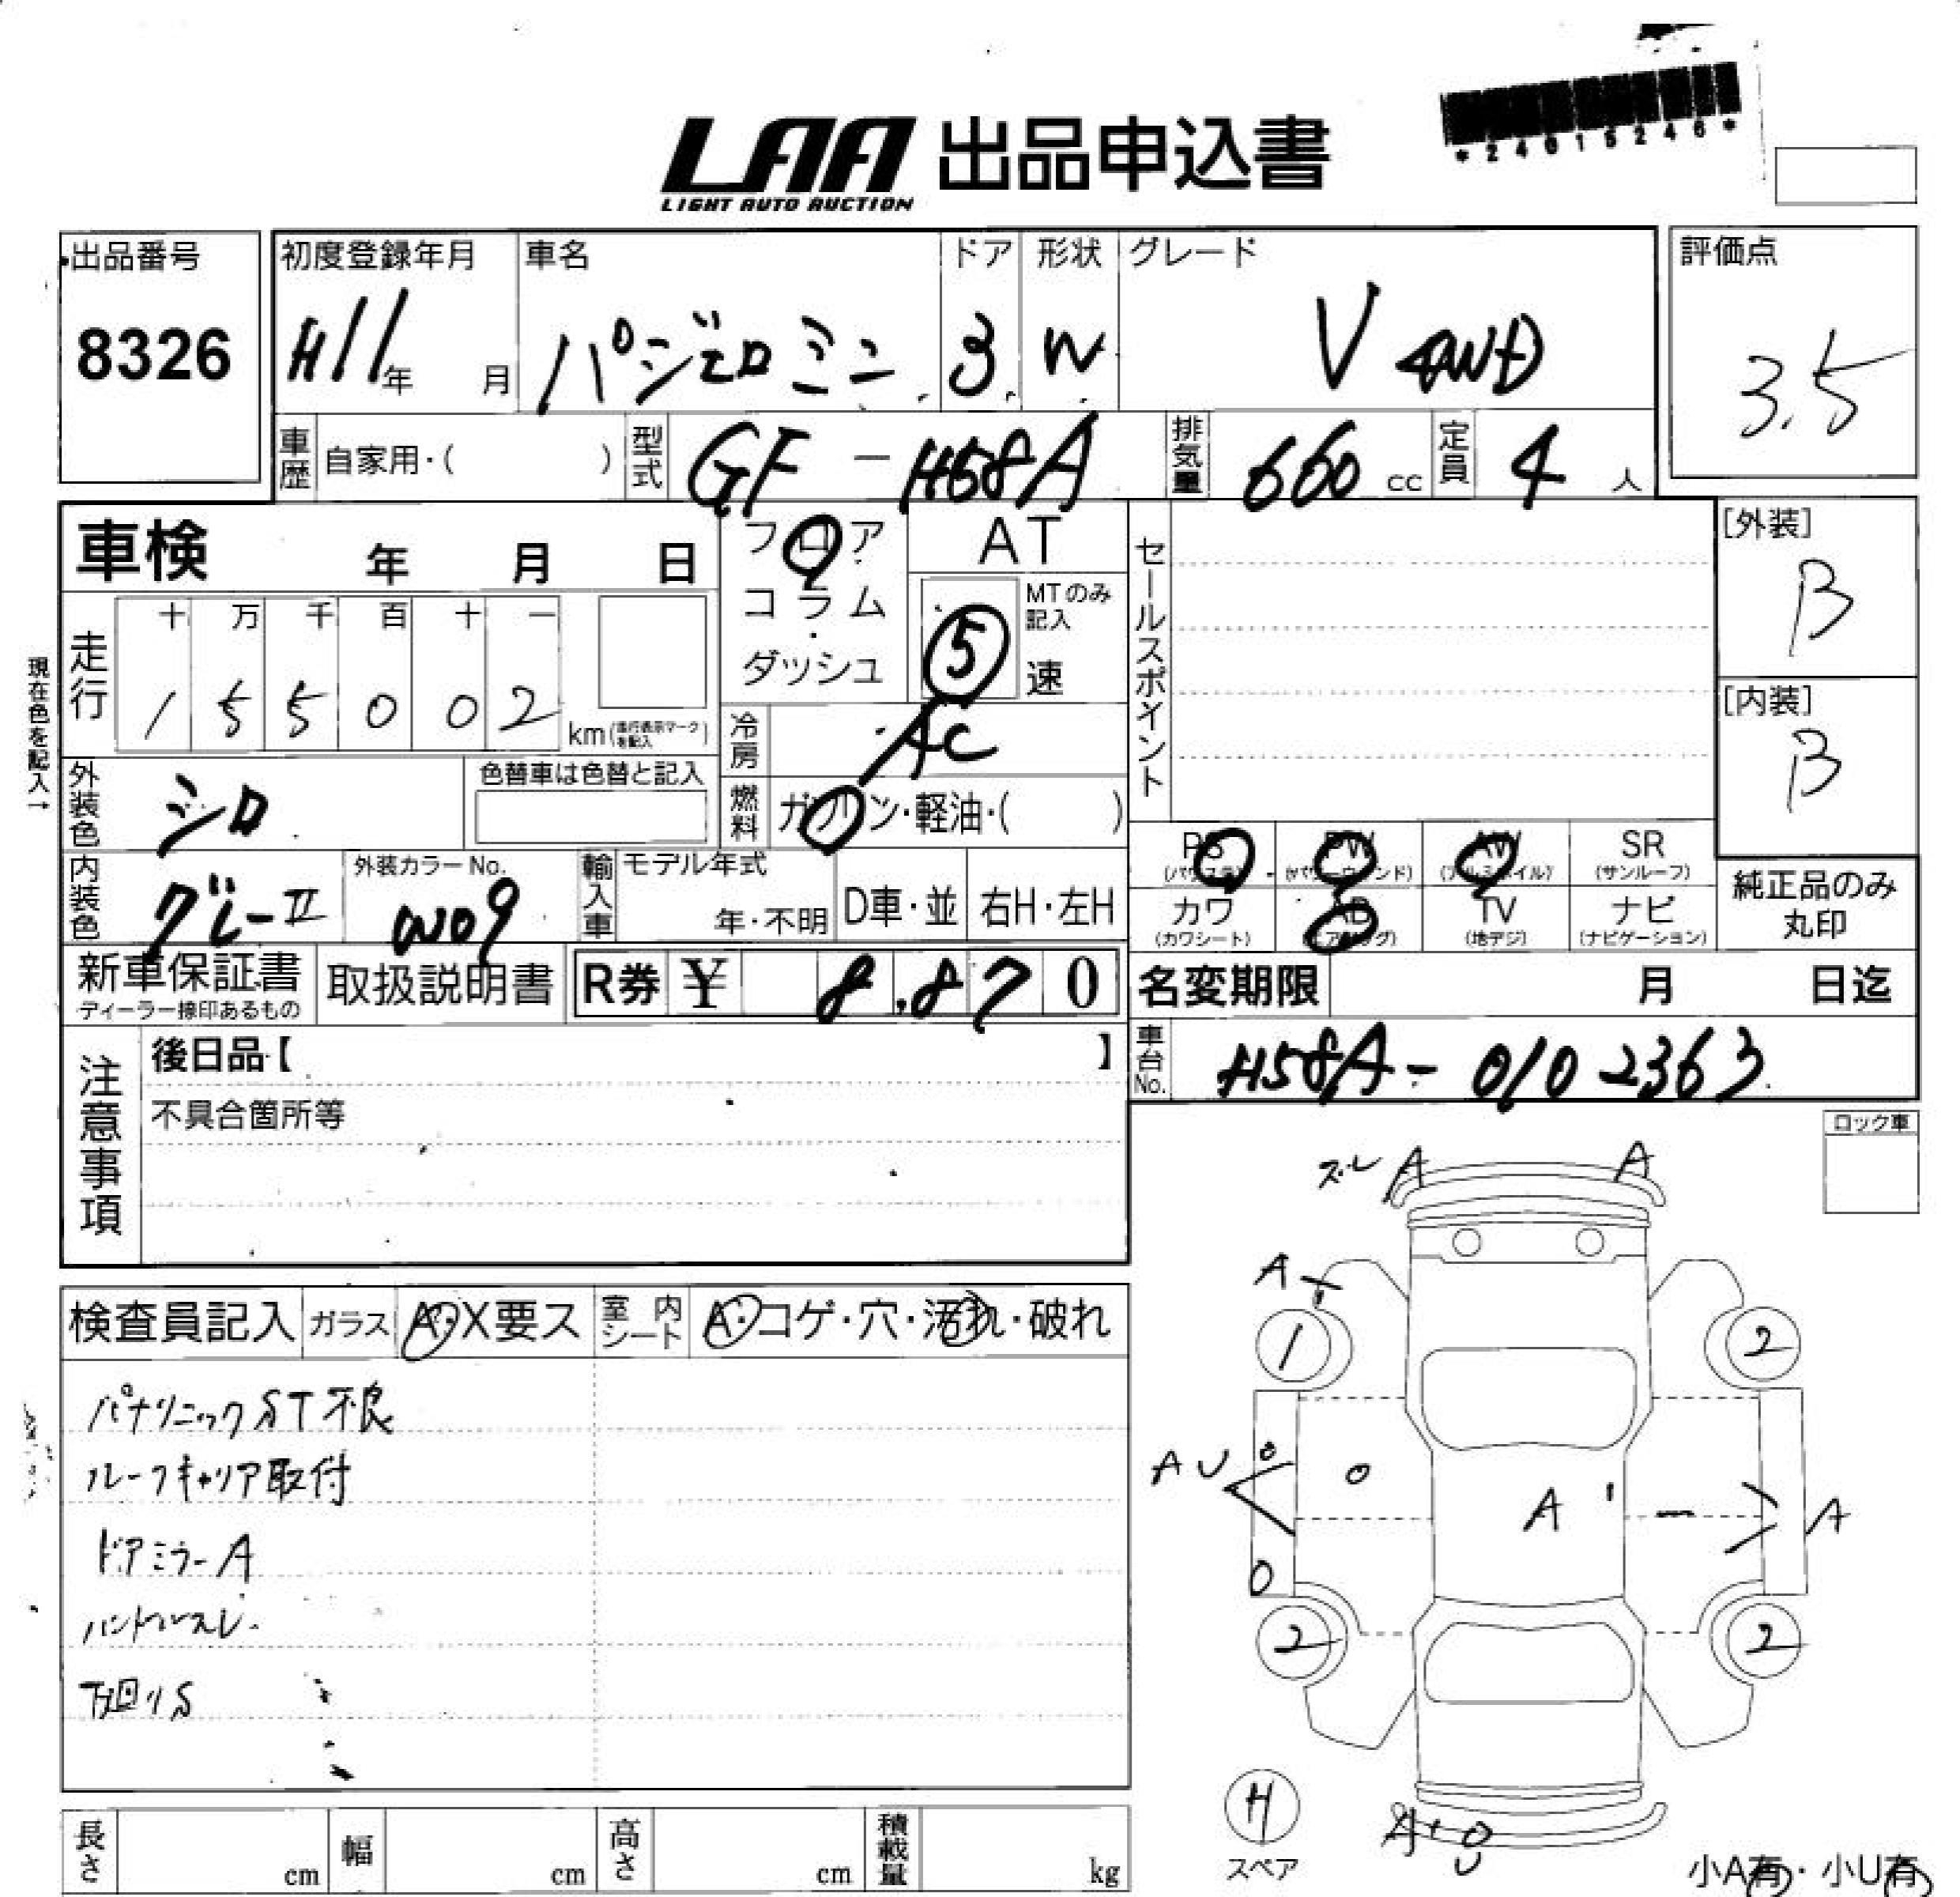 *24015246*
LAA 出品申込書
LIGHT AUTO AUCTION
出品番号 初度登録年月 車名 ドア 形状 グレード 評価点
8326 H11年 月 パジェロミニ 3 W V 4WD 3.5
車歴 自家用・( ) 型式 GF-H58A 排気量 660 cc 定員 4 人
車検 年 月 日 フロア AT セールスポイント [外装]
コラム・ MTのみ記入 B
ダッシュ ⑤ 速
現在色を記入→
走行 十 万 千 百 十 一
1 5 5 0 0 2 km(走行表示マークを記入)
[内装]
B
冷房 AC
外装色 シロ 色替車は色替と記入 燃料 ガソリン・軽油・( )
PS PW AW SR
(パワステ) (パワーウィンド) (アルミホイル) (サンルーフ)
カワ AB TV ナビ
(カワシート) (エアバッグ) (地デジ) (ナビゲーション)
純正品のみ
丸印
内装色 グレーII 外装カラーNo. W09 輸入車 モデル年式 年・不明 D車・並 右H・左H
新車保証書 取扱説明書 R券 ¥ 8,870 名変期限 月 日迄
ディーラー捺印あるもの
車台No. H58A-0102363
注意事項 後日品【 】
不具合箇所等
ロック車
ズレ A A
A
1 2
AU A A
2 2
H
スペア
小A有・小U有
検査員記入 ガラス A・X要ス 室内シート A・コゲ・穴・汚れ・破れ
パナソニックST不良
ルーフキャリア取付
ドアミラーA
ハンドルスレ
下廻りS
長さ cm 幅 cm 高さ cm 積載量 kg